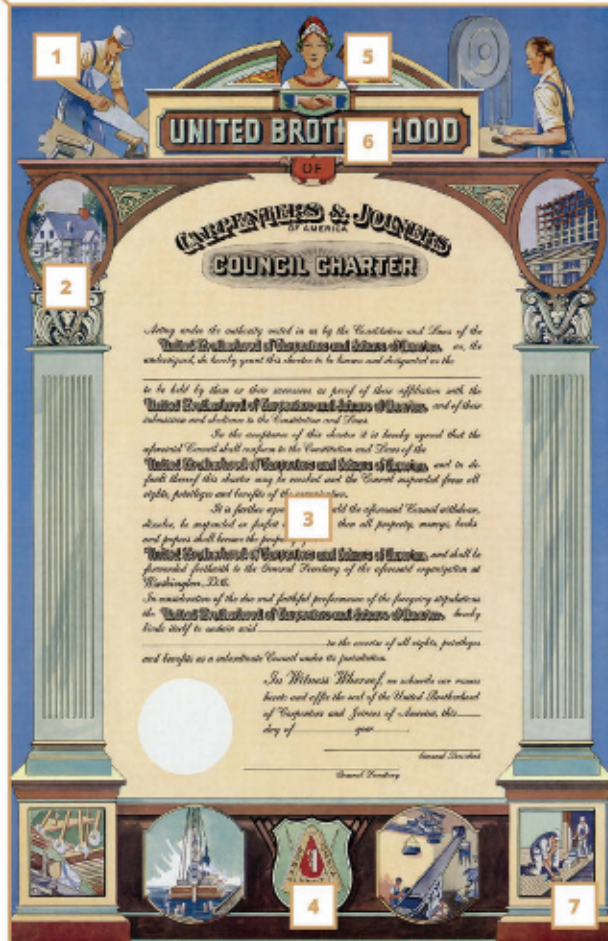 1
5
UNITED BROTHERHOOD
6
OF
2
CARPENTERS & JOINERS
OF AMERICA
COUNCIL CHARTER
Acting under the authority vested in us by the Constitution and Laws of the
United Brotherhood of Carpenters and Joiners of America, we, the
undersigned, do hereby grant this charter to be known and designated as the
to be held by them or their successors as proof of their affiliation with the
United Brotherhood of Carpenters and Joiners of America, and of their
submission and obedience to the Constitution and Laws.
In the acceptance of this charter it is hereby agreed that the
aforesaid Council shall conform to the Constitution and Laws of the
United Brotherhood of Carpenters and Joiners of America, and in de-
fault thereof this charter may be revoked and the Council suspended from all
rights, privileges and benefits of the
It is further agreed ld the aforesaid Council withdraw,
dissolve, be suspended or forfeit then all property, moneys, books
and papers shall become the property
3
United Brotherhood of Carpenters and Joiners of America, and shall be
forwarded forthwith to the General Secretary of the aforesaid organization at
Washington, D.C.
In consideration of the due and faithful performance of the foregoing stipulations
the United Brotherhood of Carpenters and Joiners of America, hereby
binds itself to sustain said
in the exercise of all rights, privileges
and benefits as a subordinate Council under its jurisdiction.
In Witness Whereof, we subscribe our names
hereto and affix the seal of the United Brotherhood
of Carpenters and Joiners of America, this
day of year
General President
General Secretary
4
7